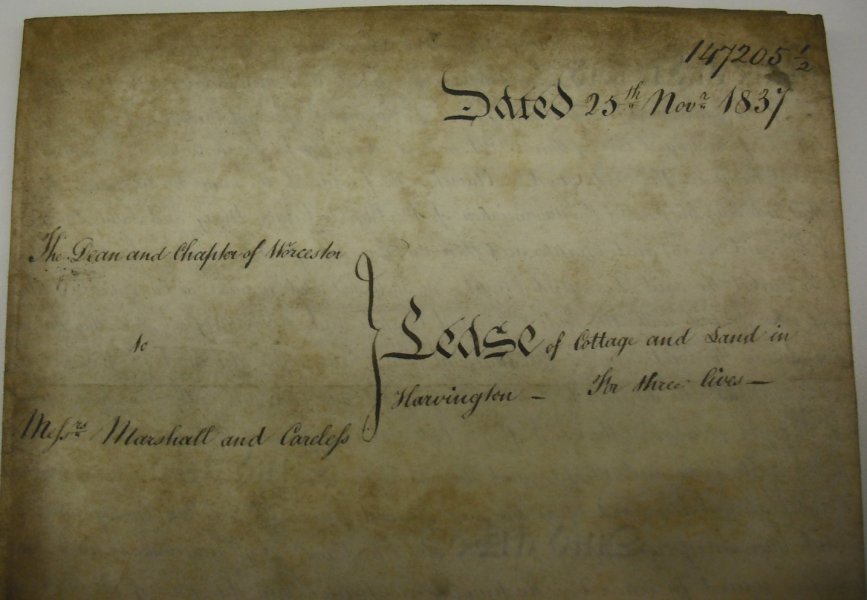 147205 1/2
Dated 25th Novr 1837
The Dean and Chapter of Worcester
to
Messrs Marshall and Careless
Lease of Cottage and Land in
Harvington — For three lives —